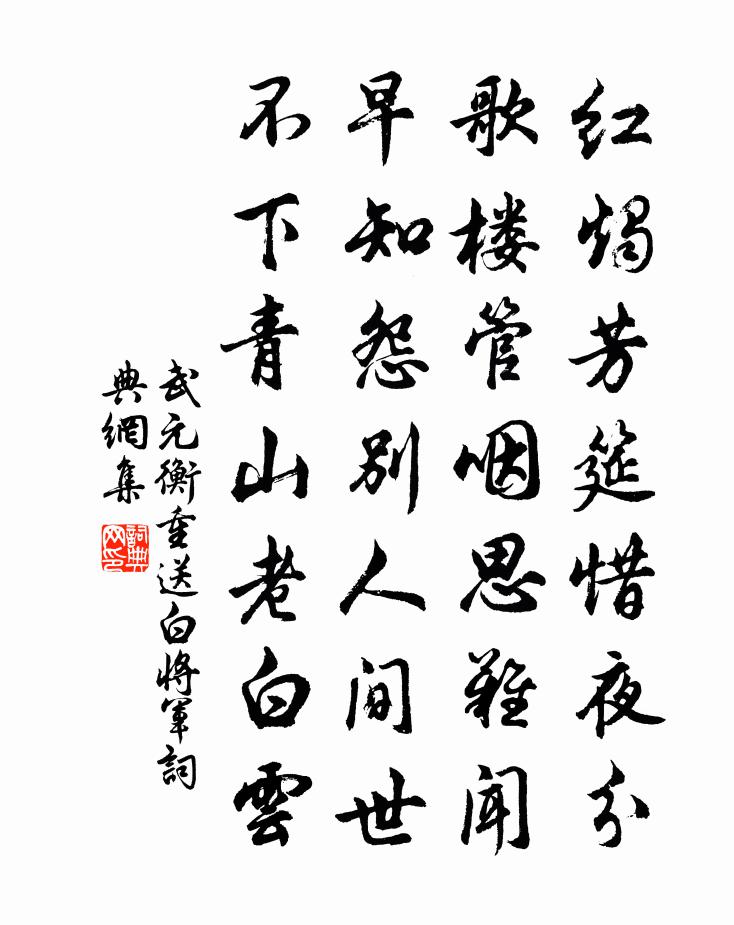 红烛芳筵惜夜分
歌楼管咽思難闻
早知怨别人间世
不下青山老白雲
武元衡重送白将軍詞
典網集
詞典
网印